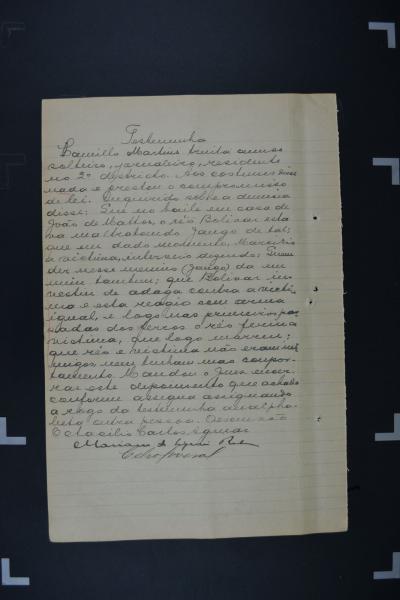 Testemunha
Camillo Martins trinta annos
solteiro, jornaleiro, residente
no 2º districto. Aos costumes disse
nada e prestou o compromisso
de lei. Inquirido sobre a denuncia
disse: Que no baile em casa de
João de Mattos, o réo Bolivar esta
va maltratando Jango de tal;
que em dado momento, Marcirio
a victima, interveio dizendo:
der nesse menino (Jango) da em
mim tambem; que Bolivar in
vestiu de adaga contra a victi
ma e esta reagio com arma
igual, e logo nas primeiras pan
cadas dos ferros o réo feriu a
victima, que logo morreu;
que réo e victima não eram ini
migos nem tinham mau compor
tamento. Mandou o Juiz encer
rar este depoimento que achado
conforme assigna assignando
a rogo da testemunha analpha
beta outra pessoa. Eu escrivão
Octacilio Carlos
Mariano de